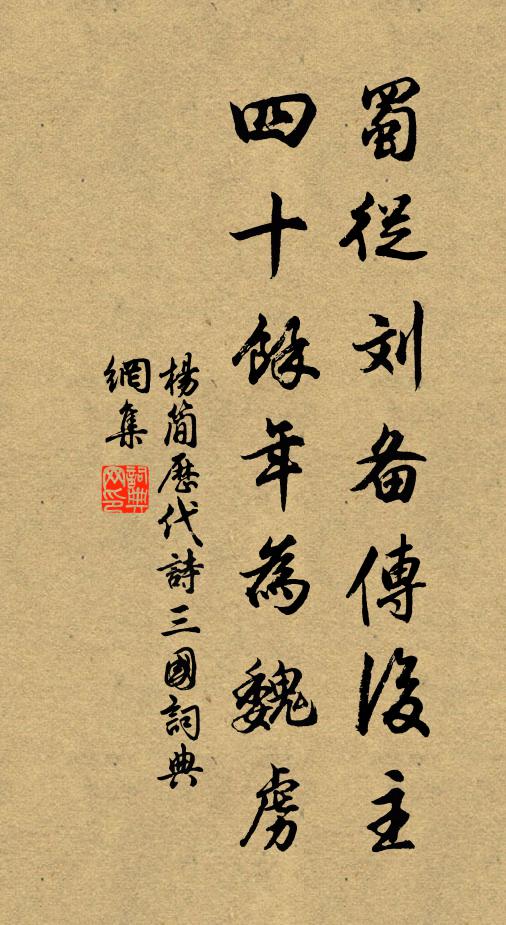 蜀從刘备傳後主
四十餘年為魏虜
楊簡歷代詩三國詞典
網集
詞典
网印